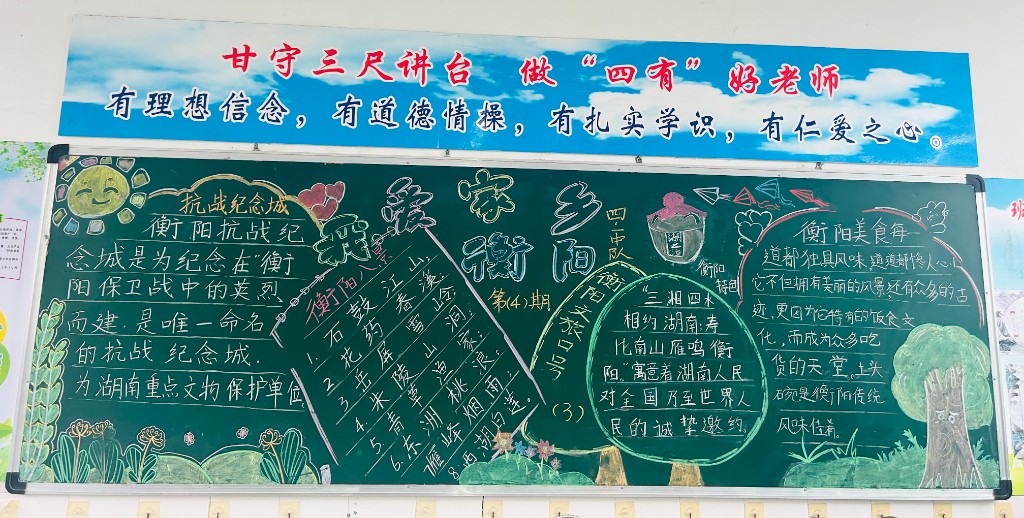 甘守三尺讲台 做“四有”好老师
有理想信念，有道德情操，有扎实学识，有仁爱之心。
我爱家乡
衡阳
第(4)期
抗战纪念城
衡阳抗战纪
念城是为纪念在“衡
阳保卫战中的英烈
而建.是唯一命名
的抗战纪念城.
为湖南重点文物保护单位
衡阳八景
1.石鼓江山
2 花药春溪
3.岳屏雪岭
4.朱陵山洞.
5.青草渔家.
6.东洲桃浪.
雁峰烟雨.
8.西湖白莲.
四二中队
衡阳文旅口号
(3)
“三湘四水
相约湖南.寿
比南山雁鸣衡
阳.”寓意着湖南人民
对全国乃至世界人
民的诚挚邀约.
衡阳
特色
衡阳美食每
道都独具风味,道道都馋人心
它不但拥有美丽的风景,还有众多的古
迹.更因为它特有的饭食文
化,而成为众多吃
货的天堂.土头
碗是衡阳传统
风味佳肴.
班